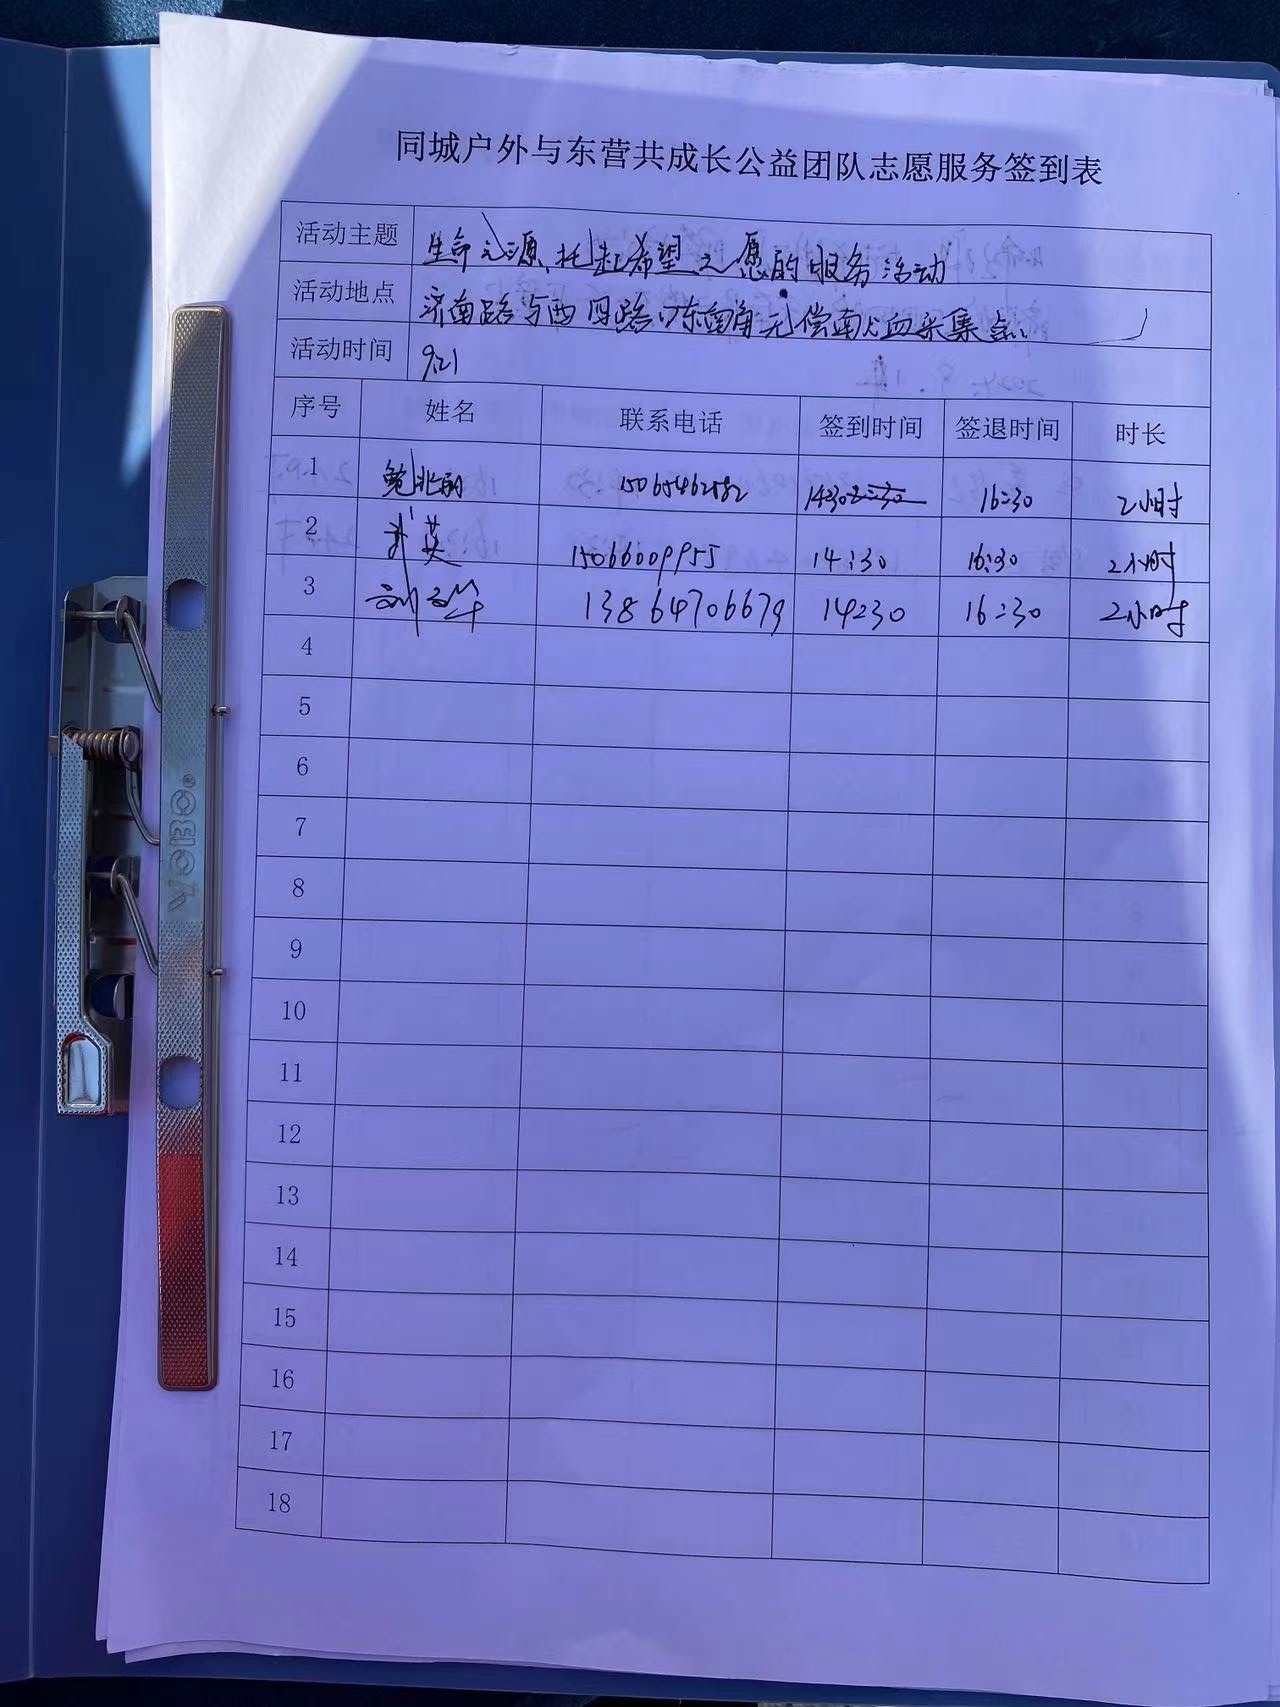 同城户外与东营共成长公益团队志愿服务签到表
活动主题 生命之源、托起希望之愿的服务活动
活动地点 济南路与西四路口东南角无偿献血采集点
活动时间 9.21
序号 姓名 联系电话 签到时间 签退时间 时长
1 鲍兆丽 15065462582 14:30 16:30 2小时
2 英 15066009955 14:30 16:30 2小时
3 刘 13864706679 14:30 16:30 2小时
4
5
6
7
8
9
10
11
12
13
14
15
16
17
18